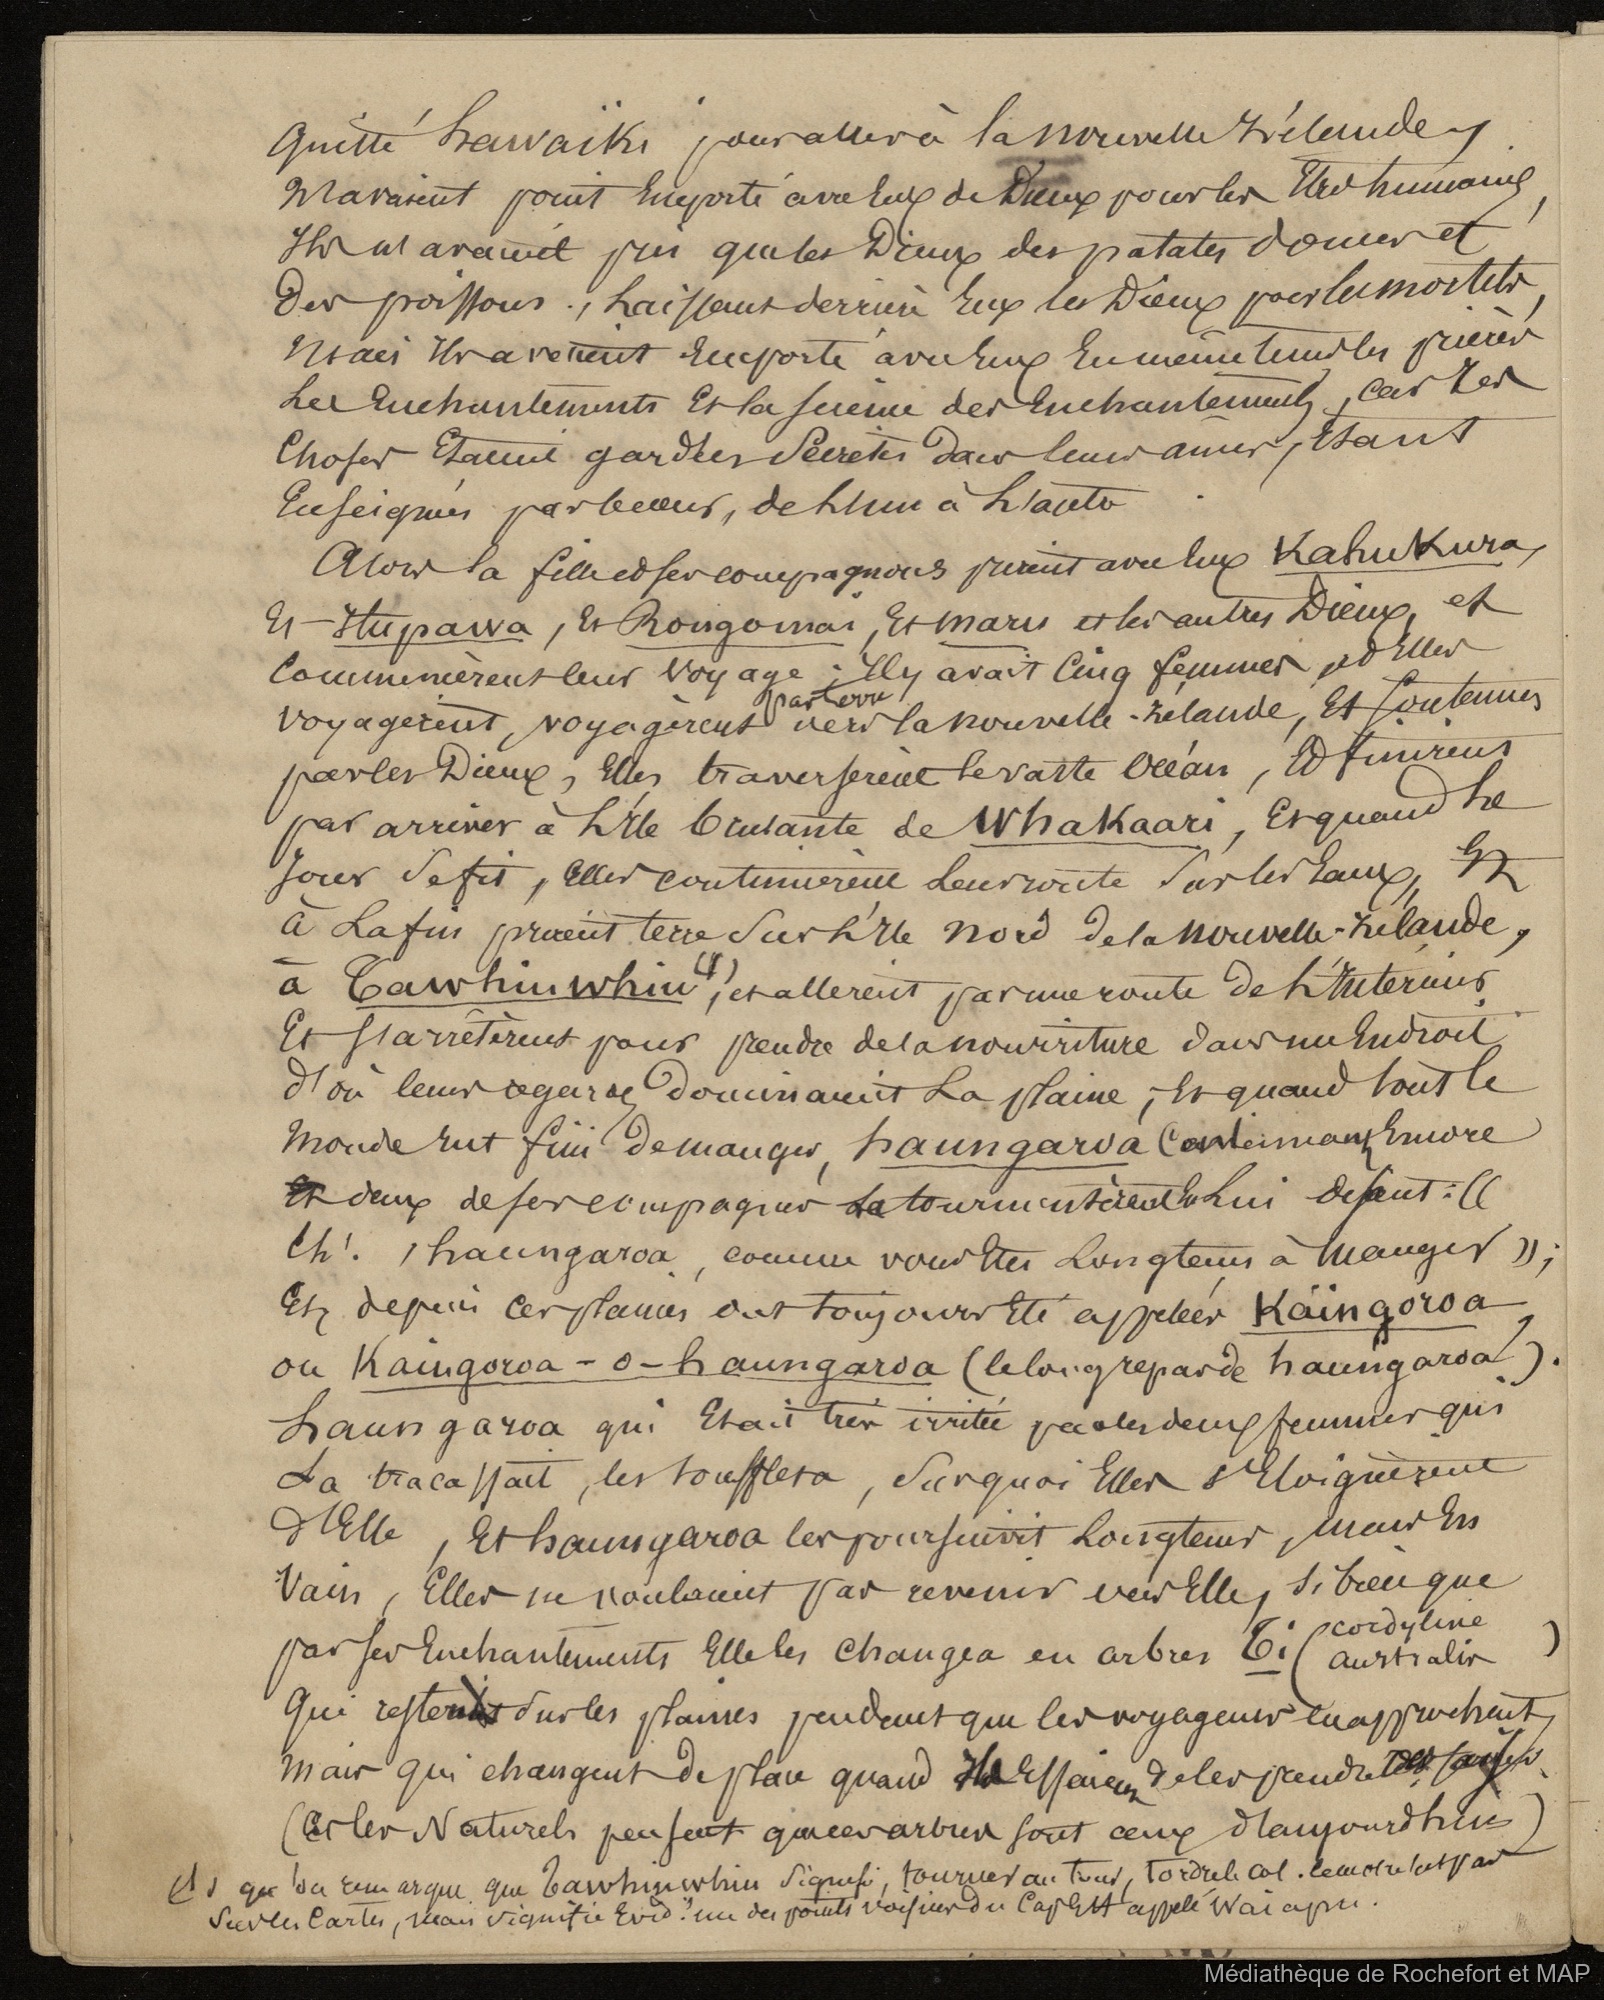 quitté hawaïki pour aller à la nouvelle Zélande,
n'avaient point Emporté avec Eux de Dieux pour les Etres humains,
Ils n'avaient pris que les Dieux des patates douces et
des poissons ., Laissant derrière Eux les Dieux pour les mortels,
Mais Ils avaient Emporté avec Eux En même tems les prières
Les Enchantements Et la science des Enchantements, car Ces
Choses Etaient gardées Secrètes Dans leurs âmes, Etant
Enseignées par le cœur, de L'un à L'autre
Alors la fille et ses compagnons prirent avec Eux Kahukura,
Et Itupawa, Et Rongomai, Et maru et les autres Dieux, et
Commencèrent leur Voyage ; Il y avait Cinq femmes, et Elles
voyagèrent, voyagèrent par terre vers la nouvelle-zélande, Et Soutenues
par les Dieux, Elles traversèrent le vaste Océan, Et finirent
par arriver à L'Ile brulante de Whakaari, Et quand Le
Jour Se fit, Elles continuèrent Leur route Sur les Eaux, Et
à La fin prirent terre Sur L'Ile nord de la nouvelle-zélande,
à Tawhiuwhiu (1), et allèrent par une route de L'Intérieur
Et S'arrêtèrent pour prendre de la nourriture dans un Endroit
d'où leurs regards Dominaient La plaine, Et quand tout le
Monde Eut fini De manger, haungaroa Continuant Encore
Et deux de ses compagnes la tourmentèrent En Lui disant : «
Oh! , haungaroa, comme vous Etes Longtems à Manger » ;
Et, depuis Ces plaines ont toujours Eté appelées Käingoroa,
ou Kaingoroa-o-haungaroa (le long repas de haungaroa).
haungaroa qui Etait très irritée par les deux femmes qui
La tracassait, les souffleta, Sur quoi Elles s'Eloignèrent
d'Elle, Et haungaroa les poursuivit Longtems, Mais En
Vain, Elles ne voulaient pas revenir vers Elle, si bien que
par ses Enchantements Elle les changea en arbres Ti (cordyline australis)
Qui restent Sur les plaines pendant que les voyageurs En approchent,
Mais qui changent de place quand Ils Essaient de les prendre
(Et les Naturels pensent que ces arbres sont ceux d'aujourd'hui)
(1) que l'on remarque que Tawhiuwhiu Signifie, tourner au tour, tordre le col. le mot n'est pas
Sur les Cartes, mais signifie Evid.t un des points voisins du Cap Est appelé Waiapu.